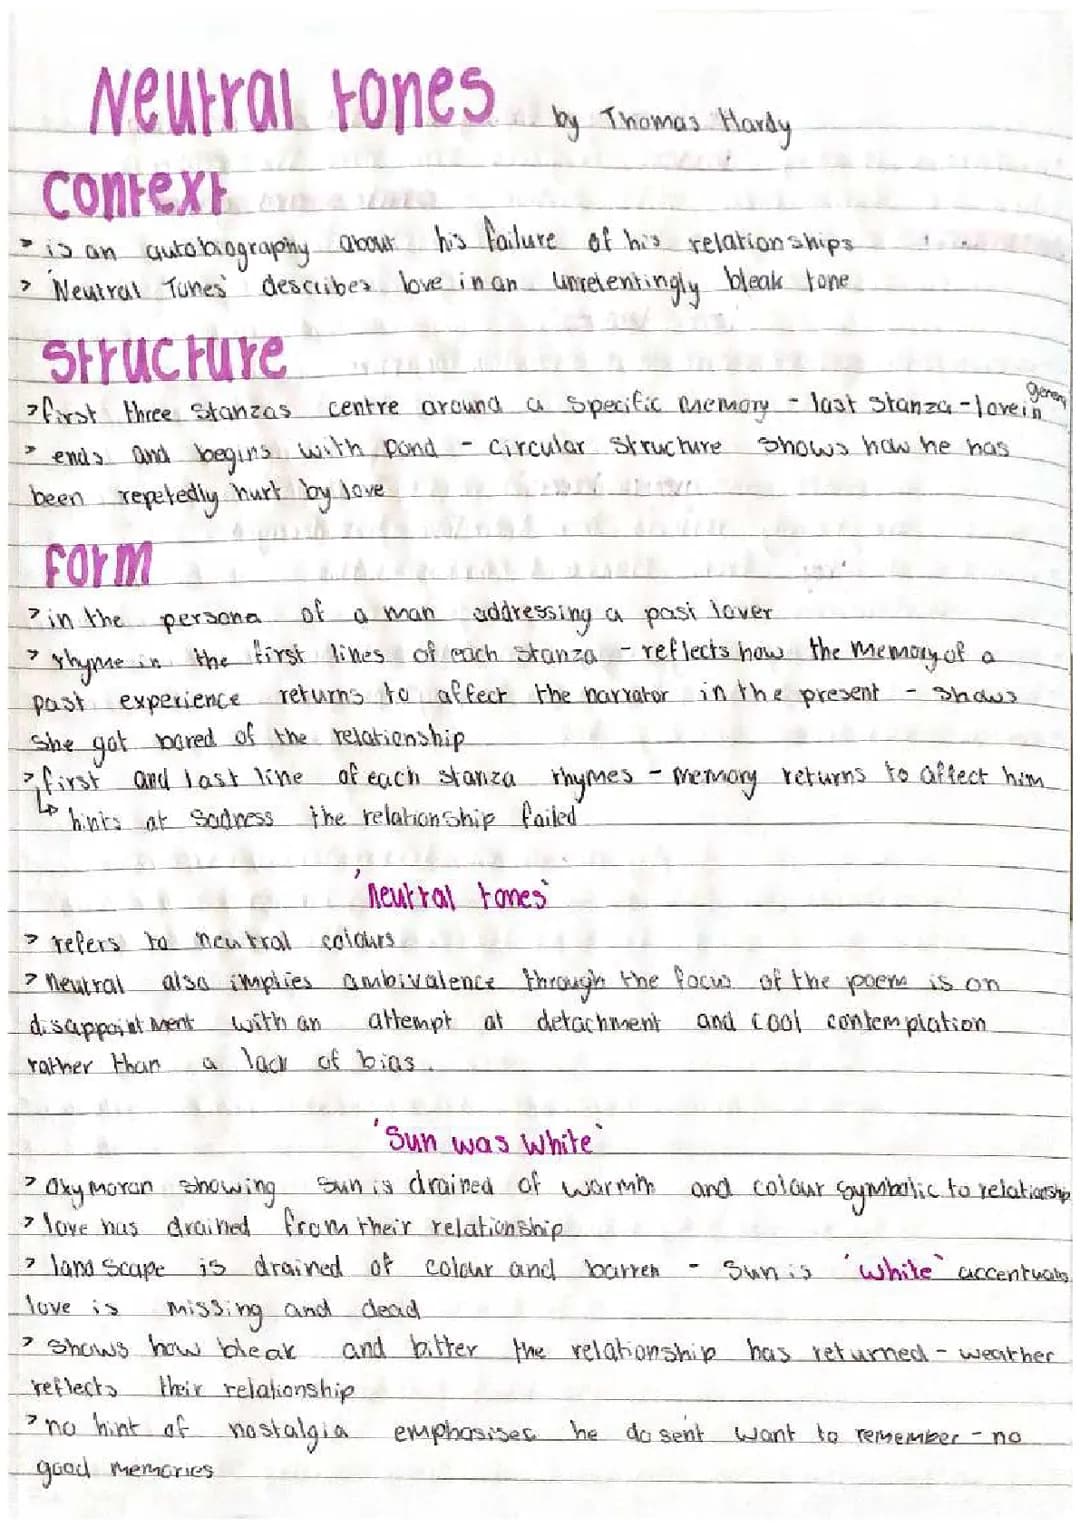 Neutral tones by Thomas Hardy
Context
> is an autobiography about his failure of his relationships
> 'Neutral Tones' describes love in an unrelentingly bleak tone
Structure
> first three stanzas centre around a specific memory - last stanza - love in
> ends and begins with pond - circular structure shows how he has
been repetedly hurt by love
Form
> in the persona of a man addressing a past lover
> rhyme in the first lines of each stanza - reflects how the memory of a
past experience returns to affect the narrator in the present - shows
she got bored of the relationship
> first and last line of each stanza rhymes - memory returns to affect him
↳ hints at sadness the relationship failed
'neutral tones'
> refers to neutral colours
> neutral also implies ambivalence through the focus of the poem is on
disappointment with an attempt at detachment and cool contemplation
rather than a lack of bias.
'Sun was white'
> Oxymoron showing sun is drained of warmth and colour symbolic to relationship
> love has drained from their relationship
> landscape is drained of colour and barren - Sun is 'white' accentuats
love is missing and dead
> shows how bleak and bitter the relationship has returned - weather
reflects their relationship
> no hint of nostalgia emphasises he dosent want to remember - no
good memories